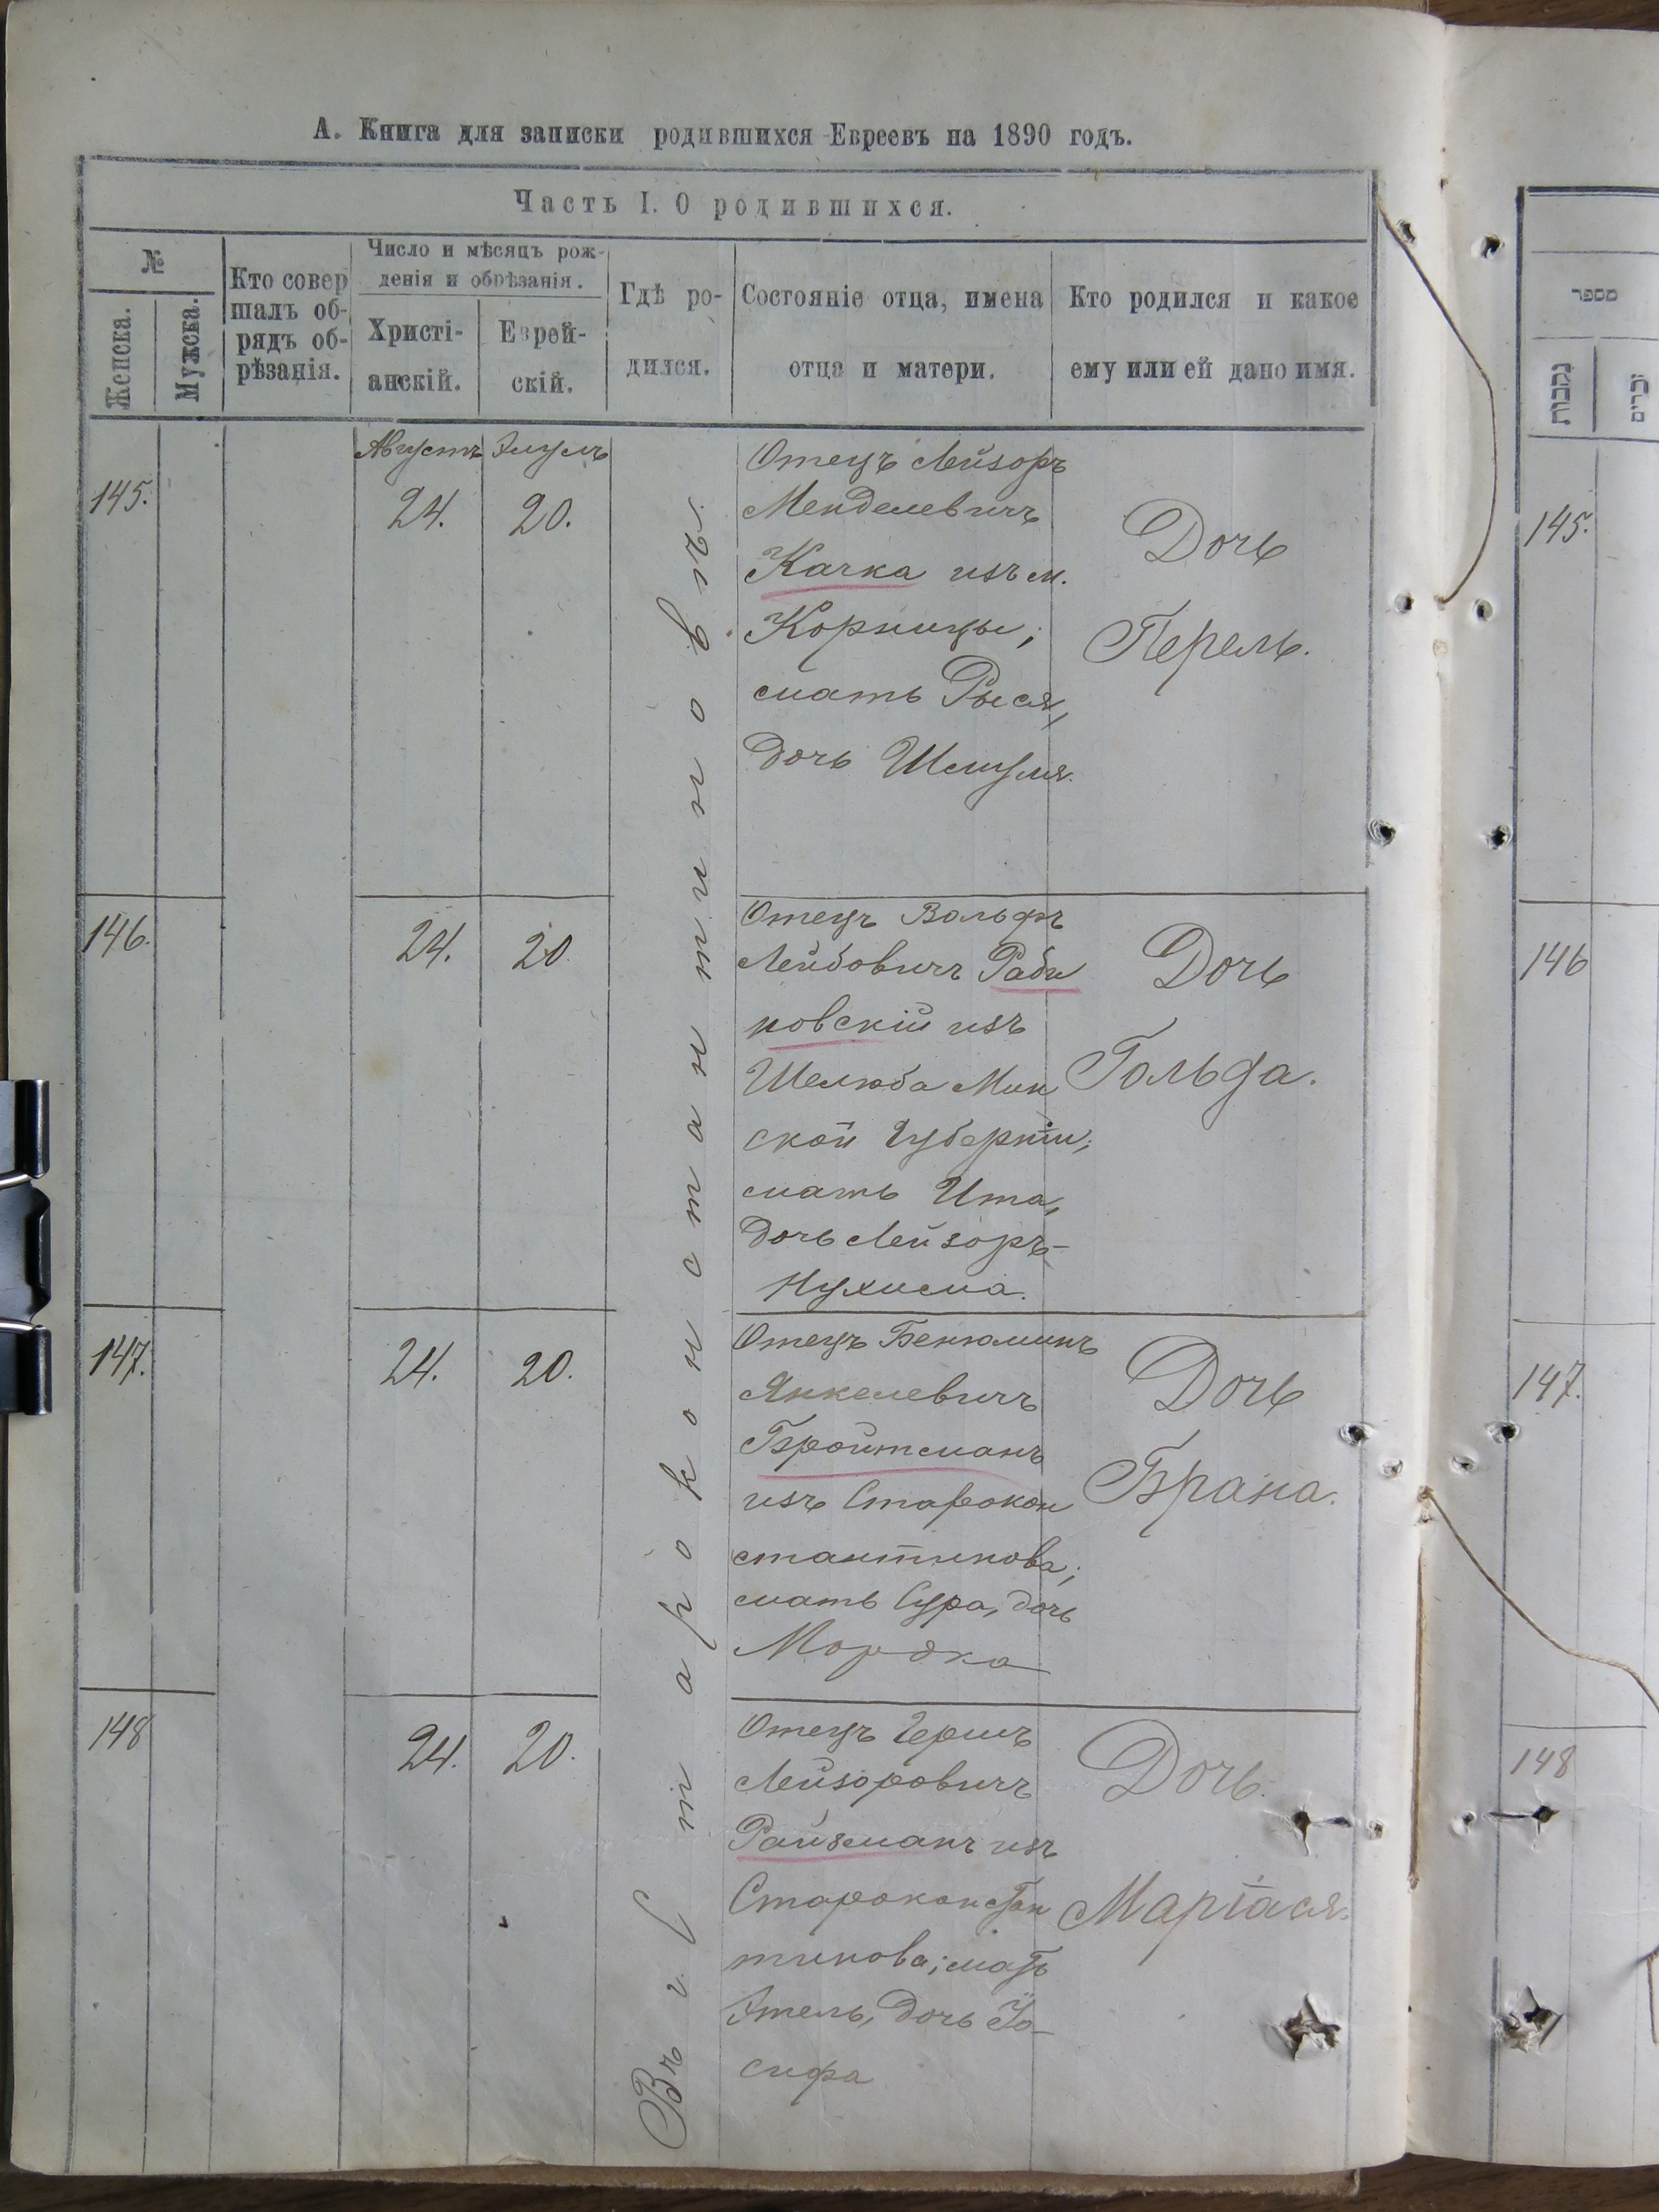 А. Книга для записки родившихся Евреевъ на 1890 годъ.
Часть I. О родившихся.
№
Женска.
Мужска.
Кто совер
шалъ об-
рядъ об-
рѣзанія.
Число и мѣсяцъ рож-
денія и обрѣзанія.
Христі-
анскій.
Еврей-
скій.
Гдѣ ро-
дился.
Состояніе отца, имена
отца и матери.
Кто родился и какое
ему или ей дано имя.
Въ г. Староконстантиновѣ.
145.
Августъ
24.
Элулъ
20.
Отецъ Лейзоръ
Менделевичъ
Качка изъ м.
Корницы;
мать Рыся,
дочь Шмуля.
Дочь
Перель.
146.
24.
20.
Отецъ Вольфъ
Лейбовичъ Раби
новскій изъ
Шелюба Мин
ской губерніи;
мать Ита,
дочь Лейзоръ-
Нухима.
Дочь
Гольда.
147.
24.
20.
Отецъ Бенюминъ
Янкелевичъ
Бройтманъ
изъ Старокон
стантинова;
мать Сура, дочь
Мордка
Дочь
Брана.
148
24.
20.
Отецъ Гершъ
Лейзоровичъ
Райзманъ изъ
Староконстан
тинова; мать
Этель, дочь Іо-
сифа
Дочь.
Маріася.
מספר
נקבות
זכרים
145.
146
147.
148